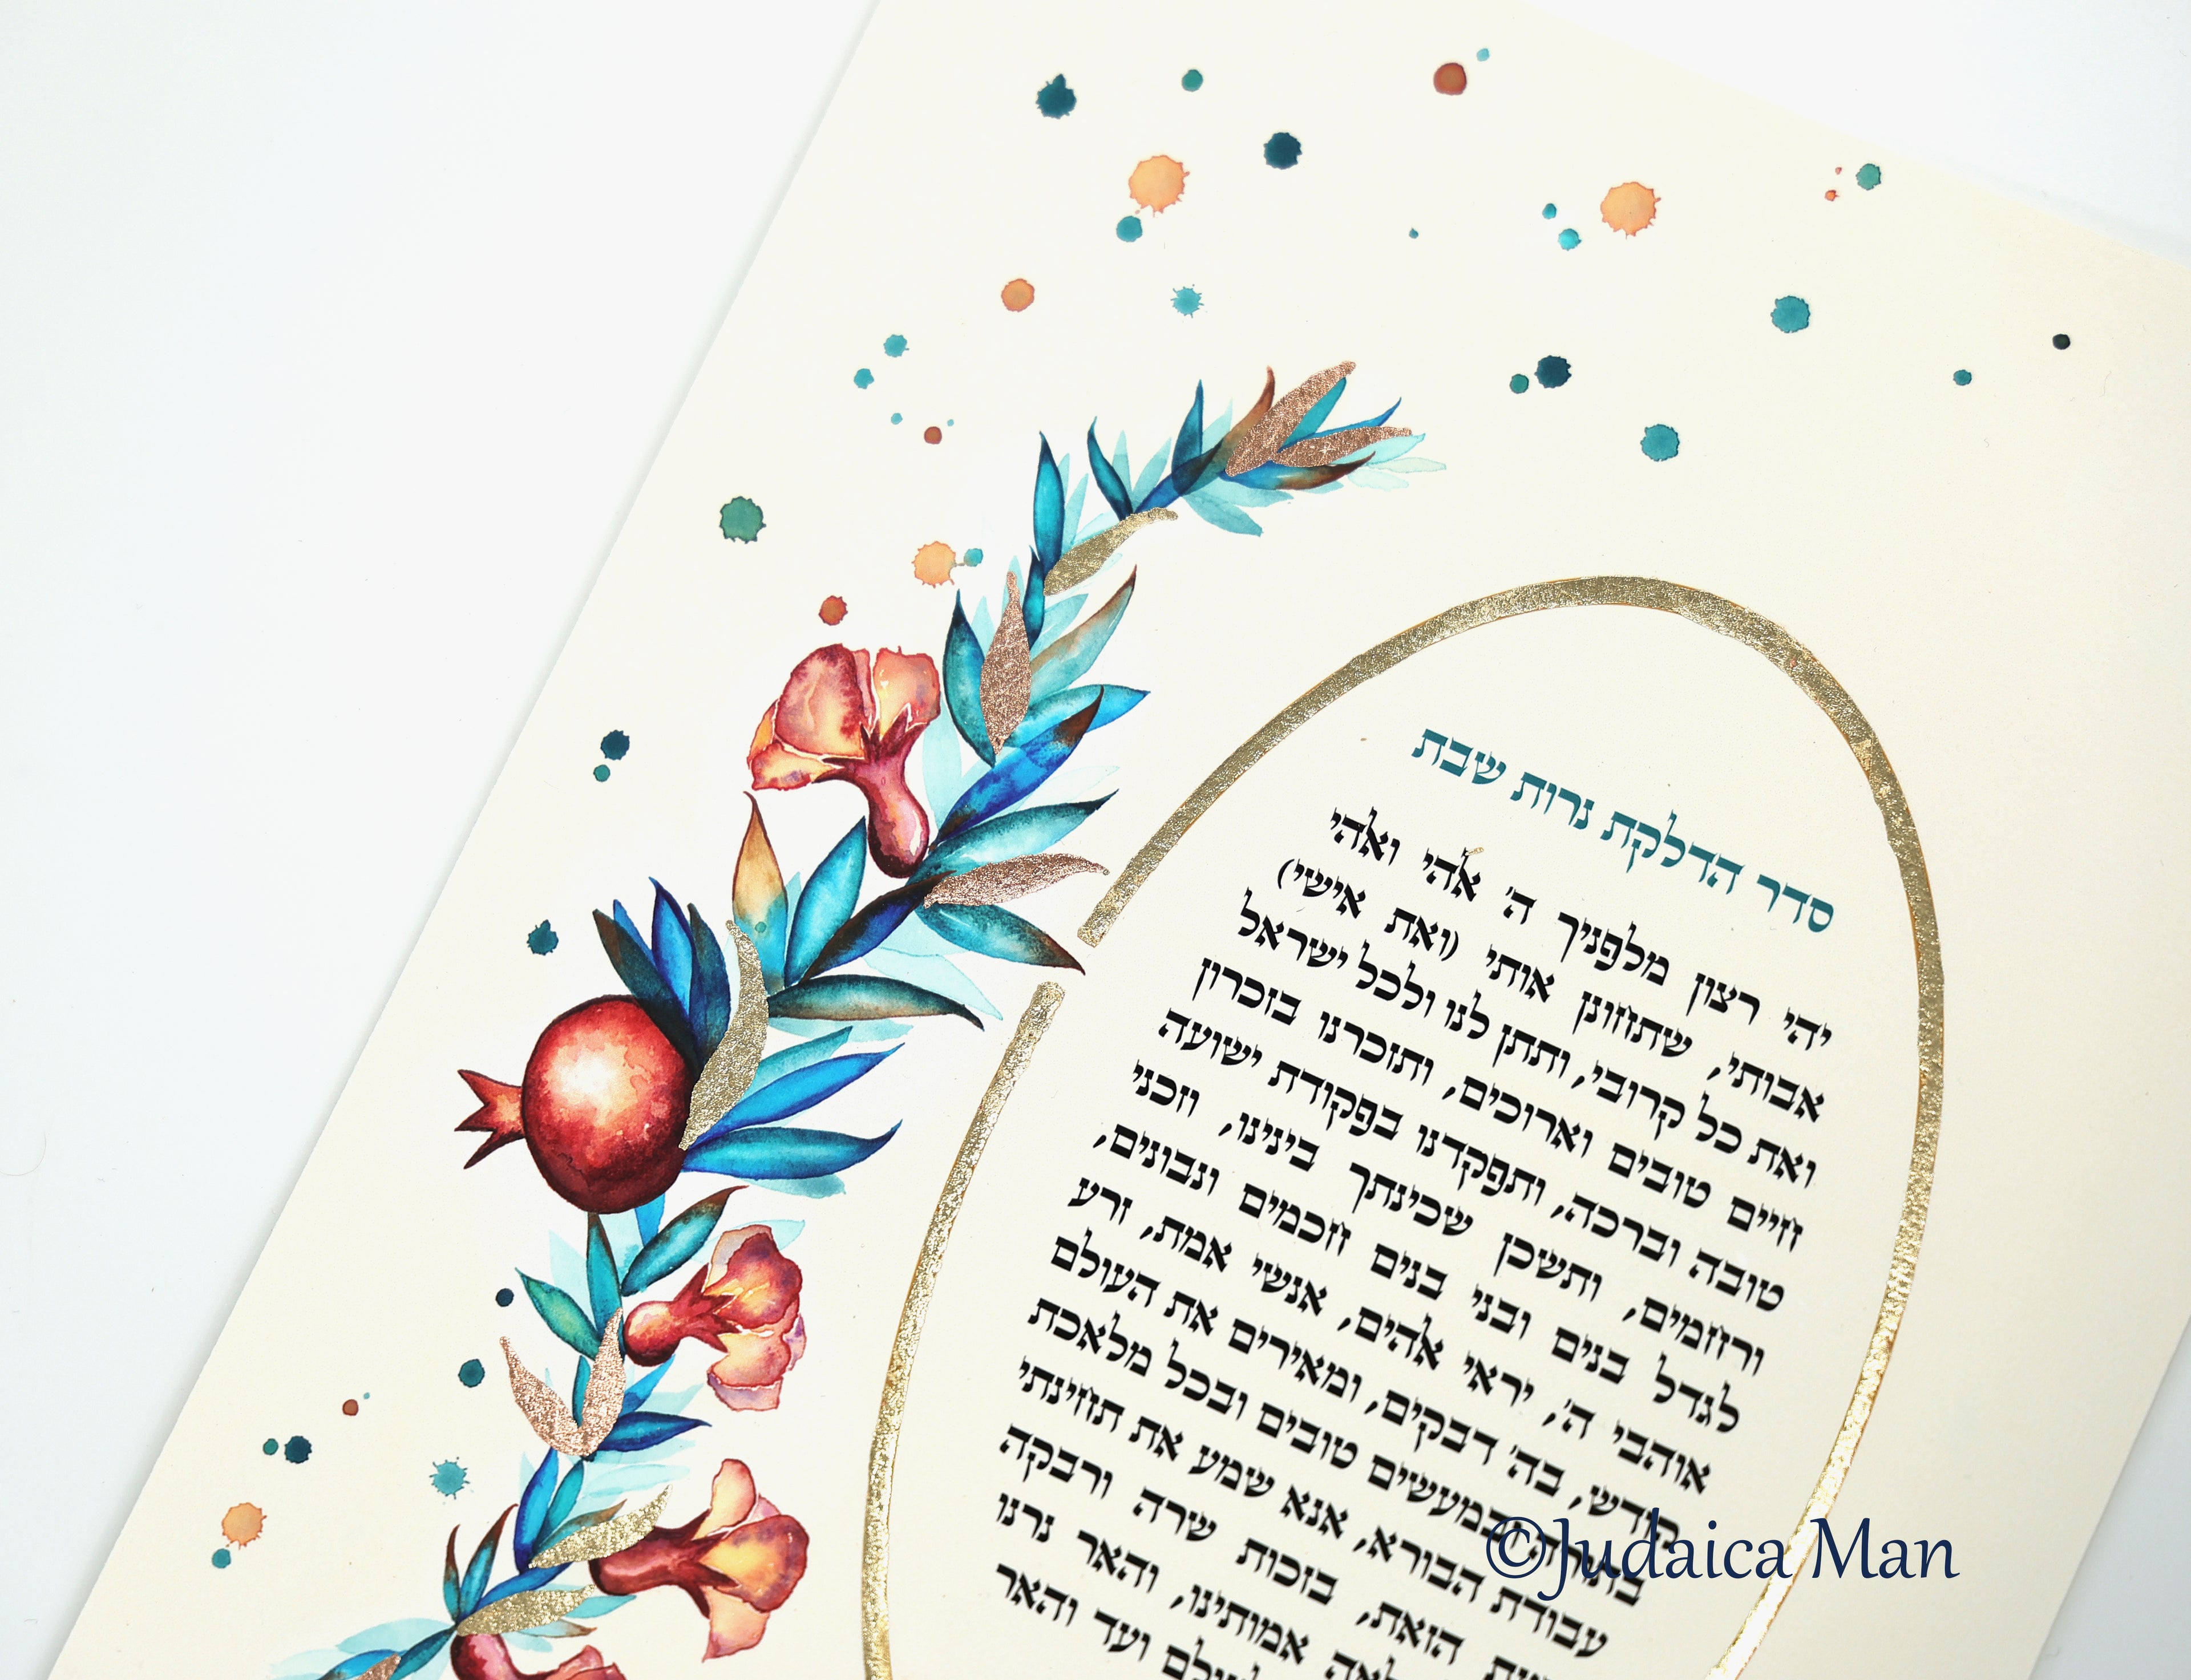 סדר הדלקת נרות שבת
יהי רצון מלפניך ה' אלהי ואלהי
אבותי, שתחונן אותי (ואת אישי)
ואת כל קרובי, ותתן לנו ולכל ישראל
חיים טובים וארוכים, ותזכרנו בזכרון
טובה וברכה, ותפקדנו בפקודת ישועה
ורחמים, ותשכן שכינתך בינינו, וזכני
לגדל בנים ובני בנים חכמים ונבונים,
אוהבי ה', יראי אלהים, אנשי אמת, זרע
קודש, בה' דבקים, ומאירים את העולם
בתורה ובמעשים טובים ובכל מלאכת
עבודת הבורא, אנא שמע את תחינתי
הזאת, בזכות שרה ורבקה
אמותינו, והאר נרנו
ועד והאר
©Judaica Man